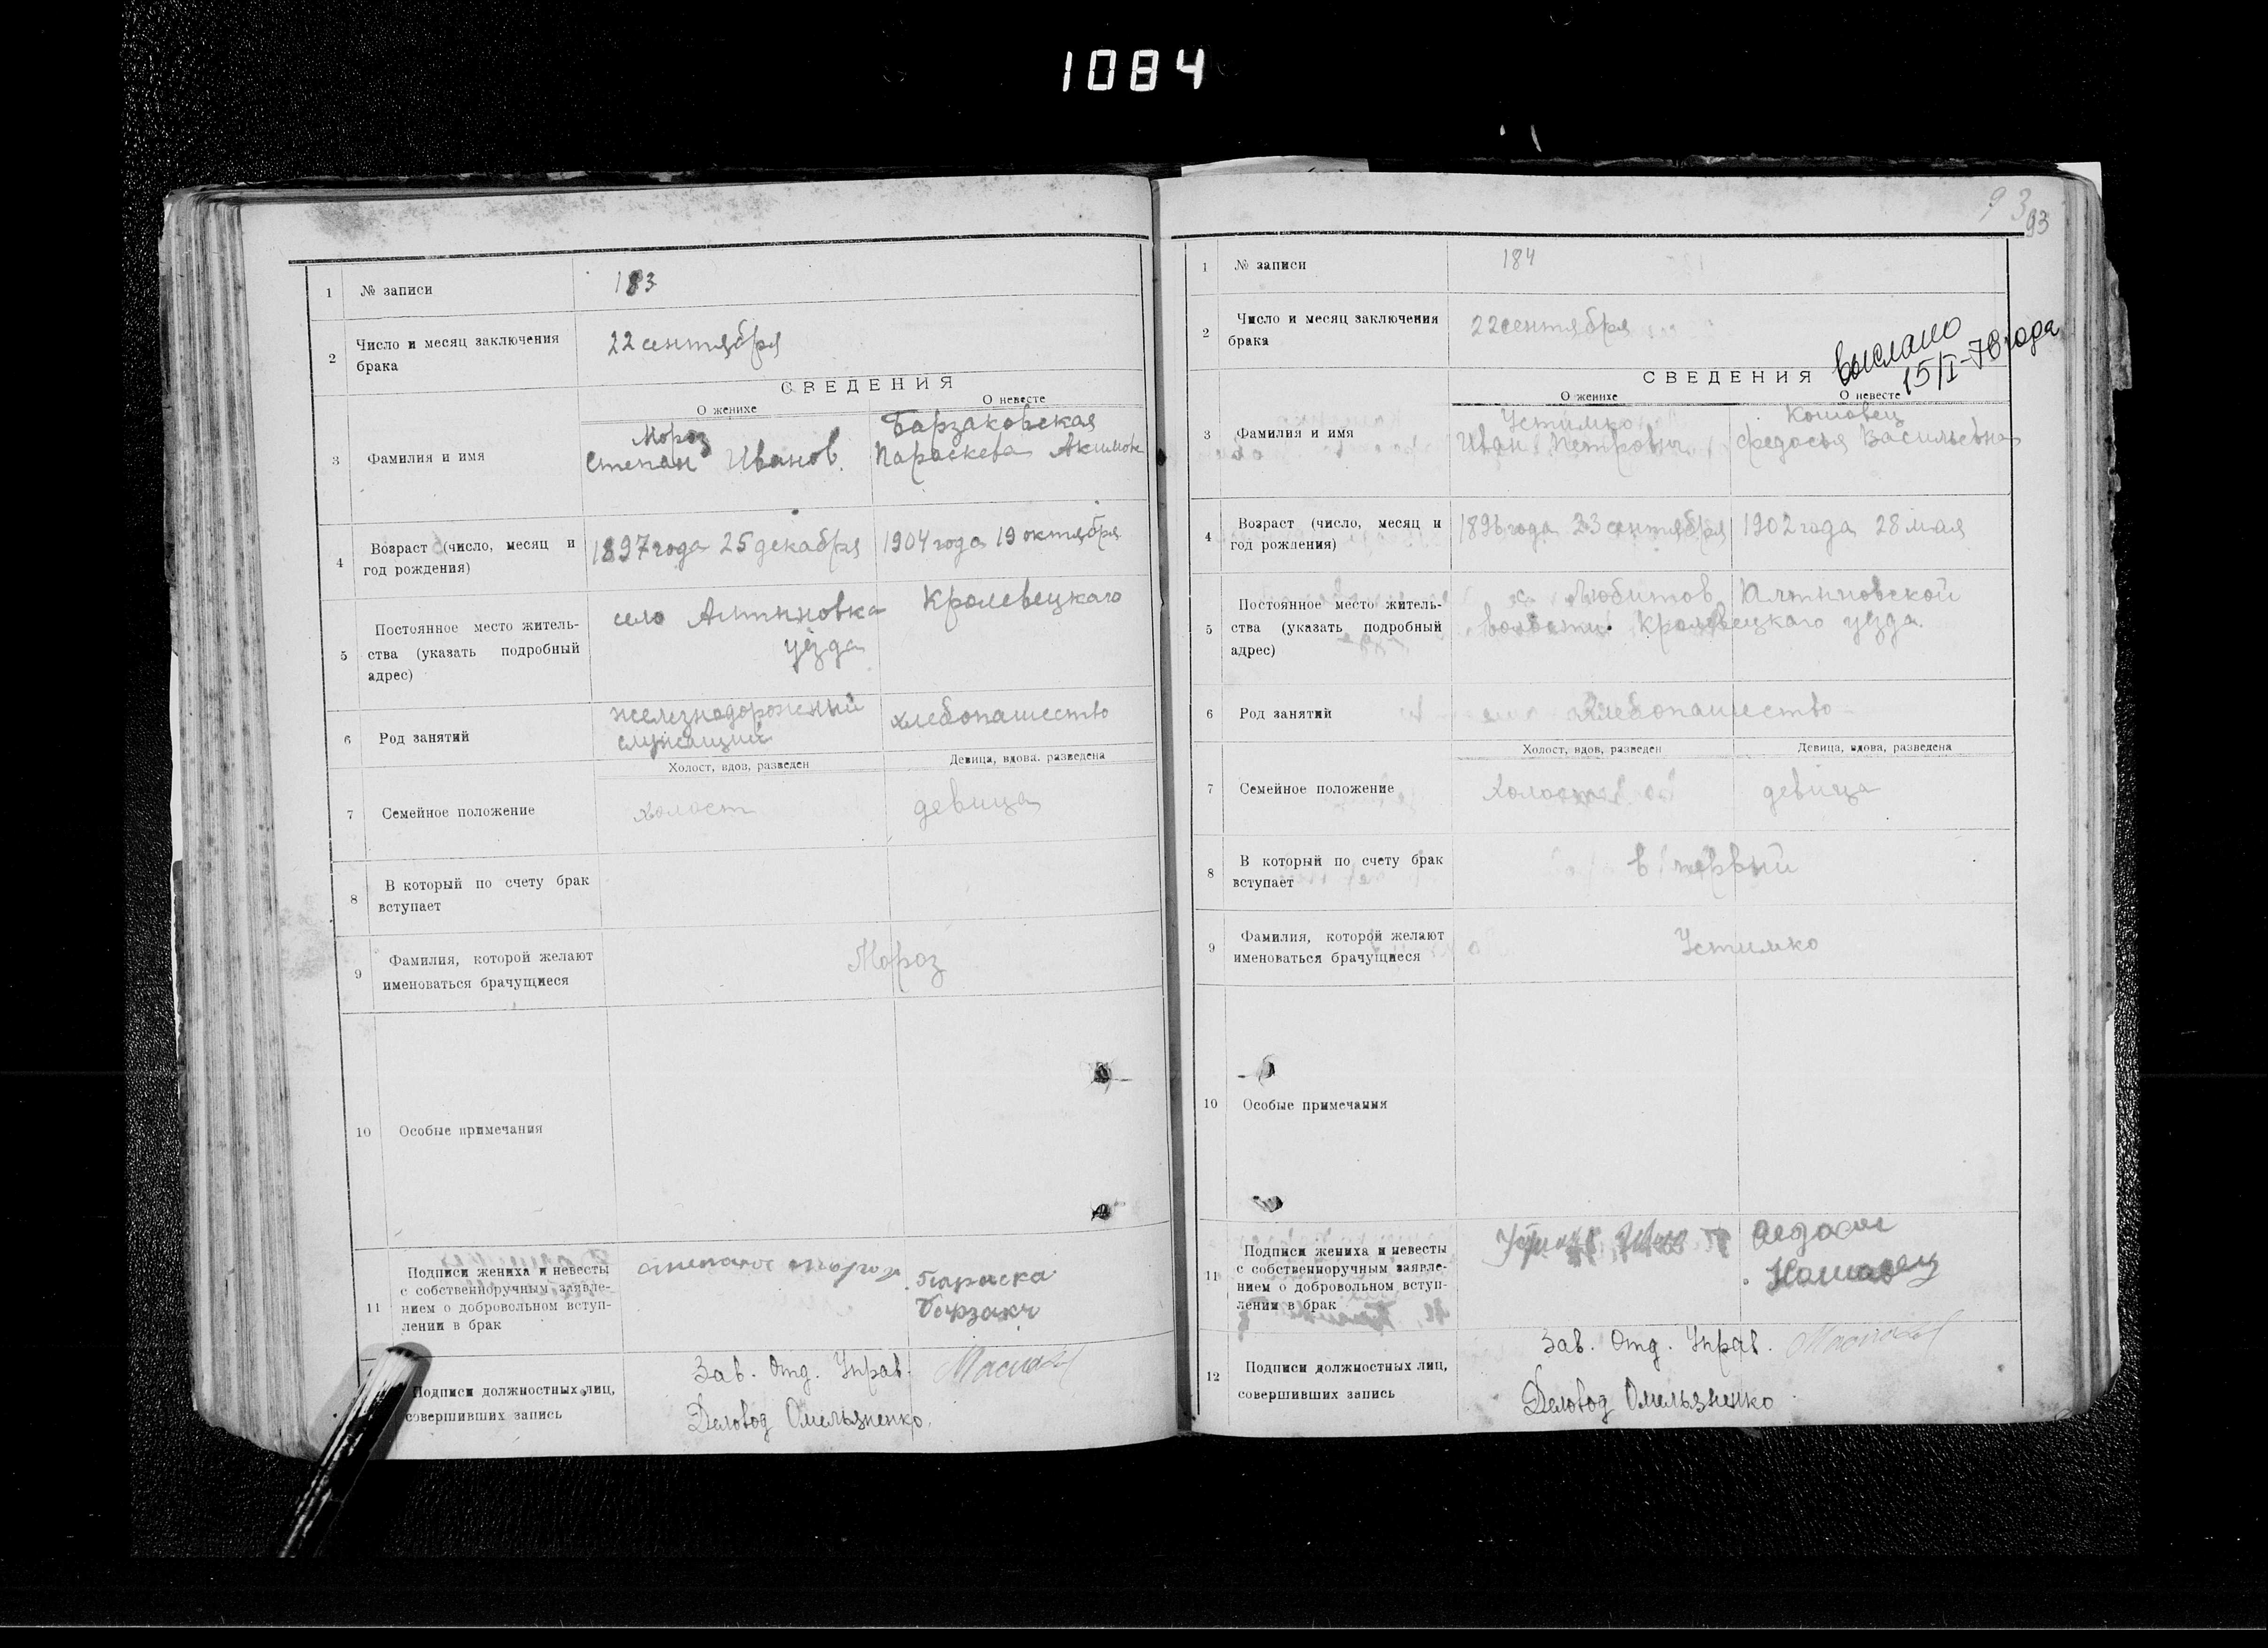 1084
1 № записи 183
2 Число и месяц заключения
брака
22 сентября
СВЕДЕНИЯ
О женихе О невесте
3 Фамилия и имя
Мороз
Степан Иванов.
Барзаковская
Параскева Акимов
4 Возраст (число, месяц и
год рождения)
1897 года 25 декабря 1904 года 19 октября
5 Постоянное место житель-
ства (указать подробный
адрес)
село Алтыновка Кролевецкаго
уезда
6 Род занятий
железнодорожный
служащий
хлебопашество
Холост, вдов, разведен Девица, вдова. разведена
7 Семейное положение
холост девица
8 В который по счету брак
вступает
9 Фамилия, которой желают
именоваться брачущиеся
Мороз
10 Особые примечания
11 Подписи жениха и невесты
с собственноручным заявле-
нием о добровольном вступ-
лении в брак
Параска
Барзак
Подписи должностных лиц,
совершивших запись
Зав. Отд. Управ.
Деловод Омельяненко.
93
93
1 № записи 184
2 Число и месяц заключения
брака
22 сентября
выслано
15/I-78 года
СВЕДЕНИЯ
О женихе О невесте
3 Фамилия и имя
Устимко
Иван Петрович
Кошовец
Федосья Васильевна
4 Возраст (число, месяц и
год рождения)
1896 года 23 сентября 1902 года 28 мая
5 Постоянное место житель-
ства (указать подробный
адрес)
с. Любитов Алтыновской
волости. Кролевецкаго уезда
6 Род занятий
Хлебопашество
Холост, вдов, разведен Девица, вдова, разведена
7 Семейное положение
Холост девица
8 В который по счету брак
вступает
в первый
9 Фамилия, которой желают
именоваться брачущиеся
Устимко
10 Особые примечания
11 Подписи жениха и невесты
с собственноручным заявле-
нием о добровольном вступ-
лении в брак
12 Подписи должностных лиц,
совершивших запись
Зав. Отд. Управ.
Деловод Омельяненко